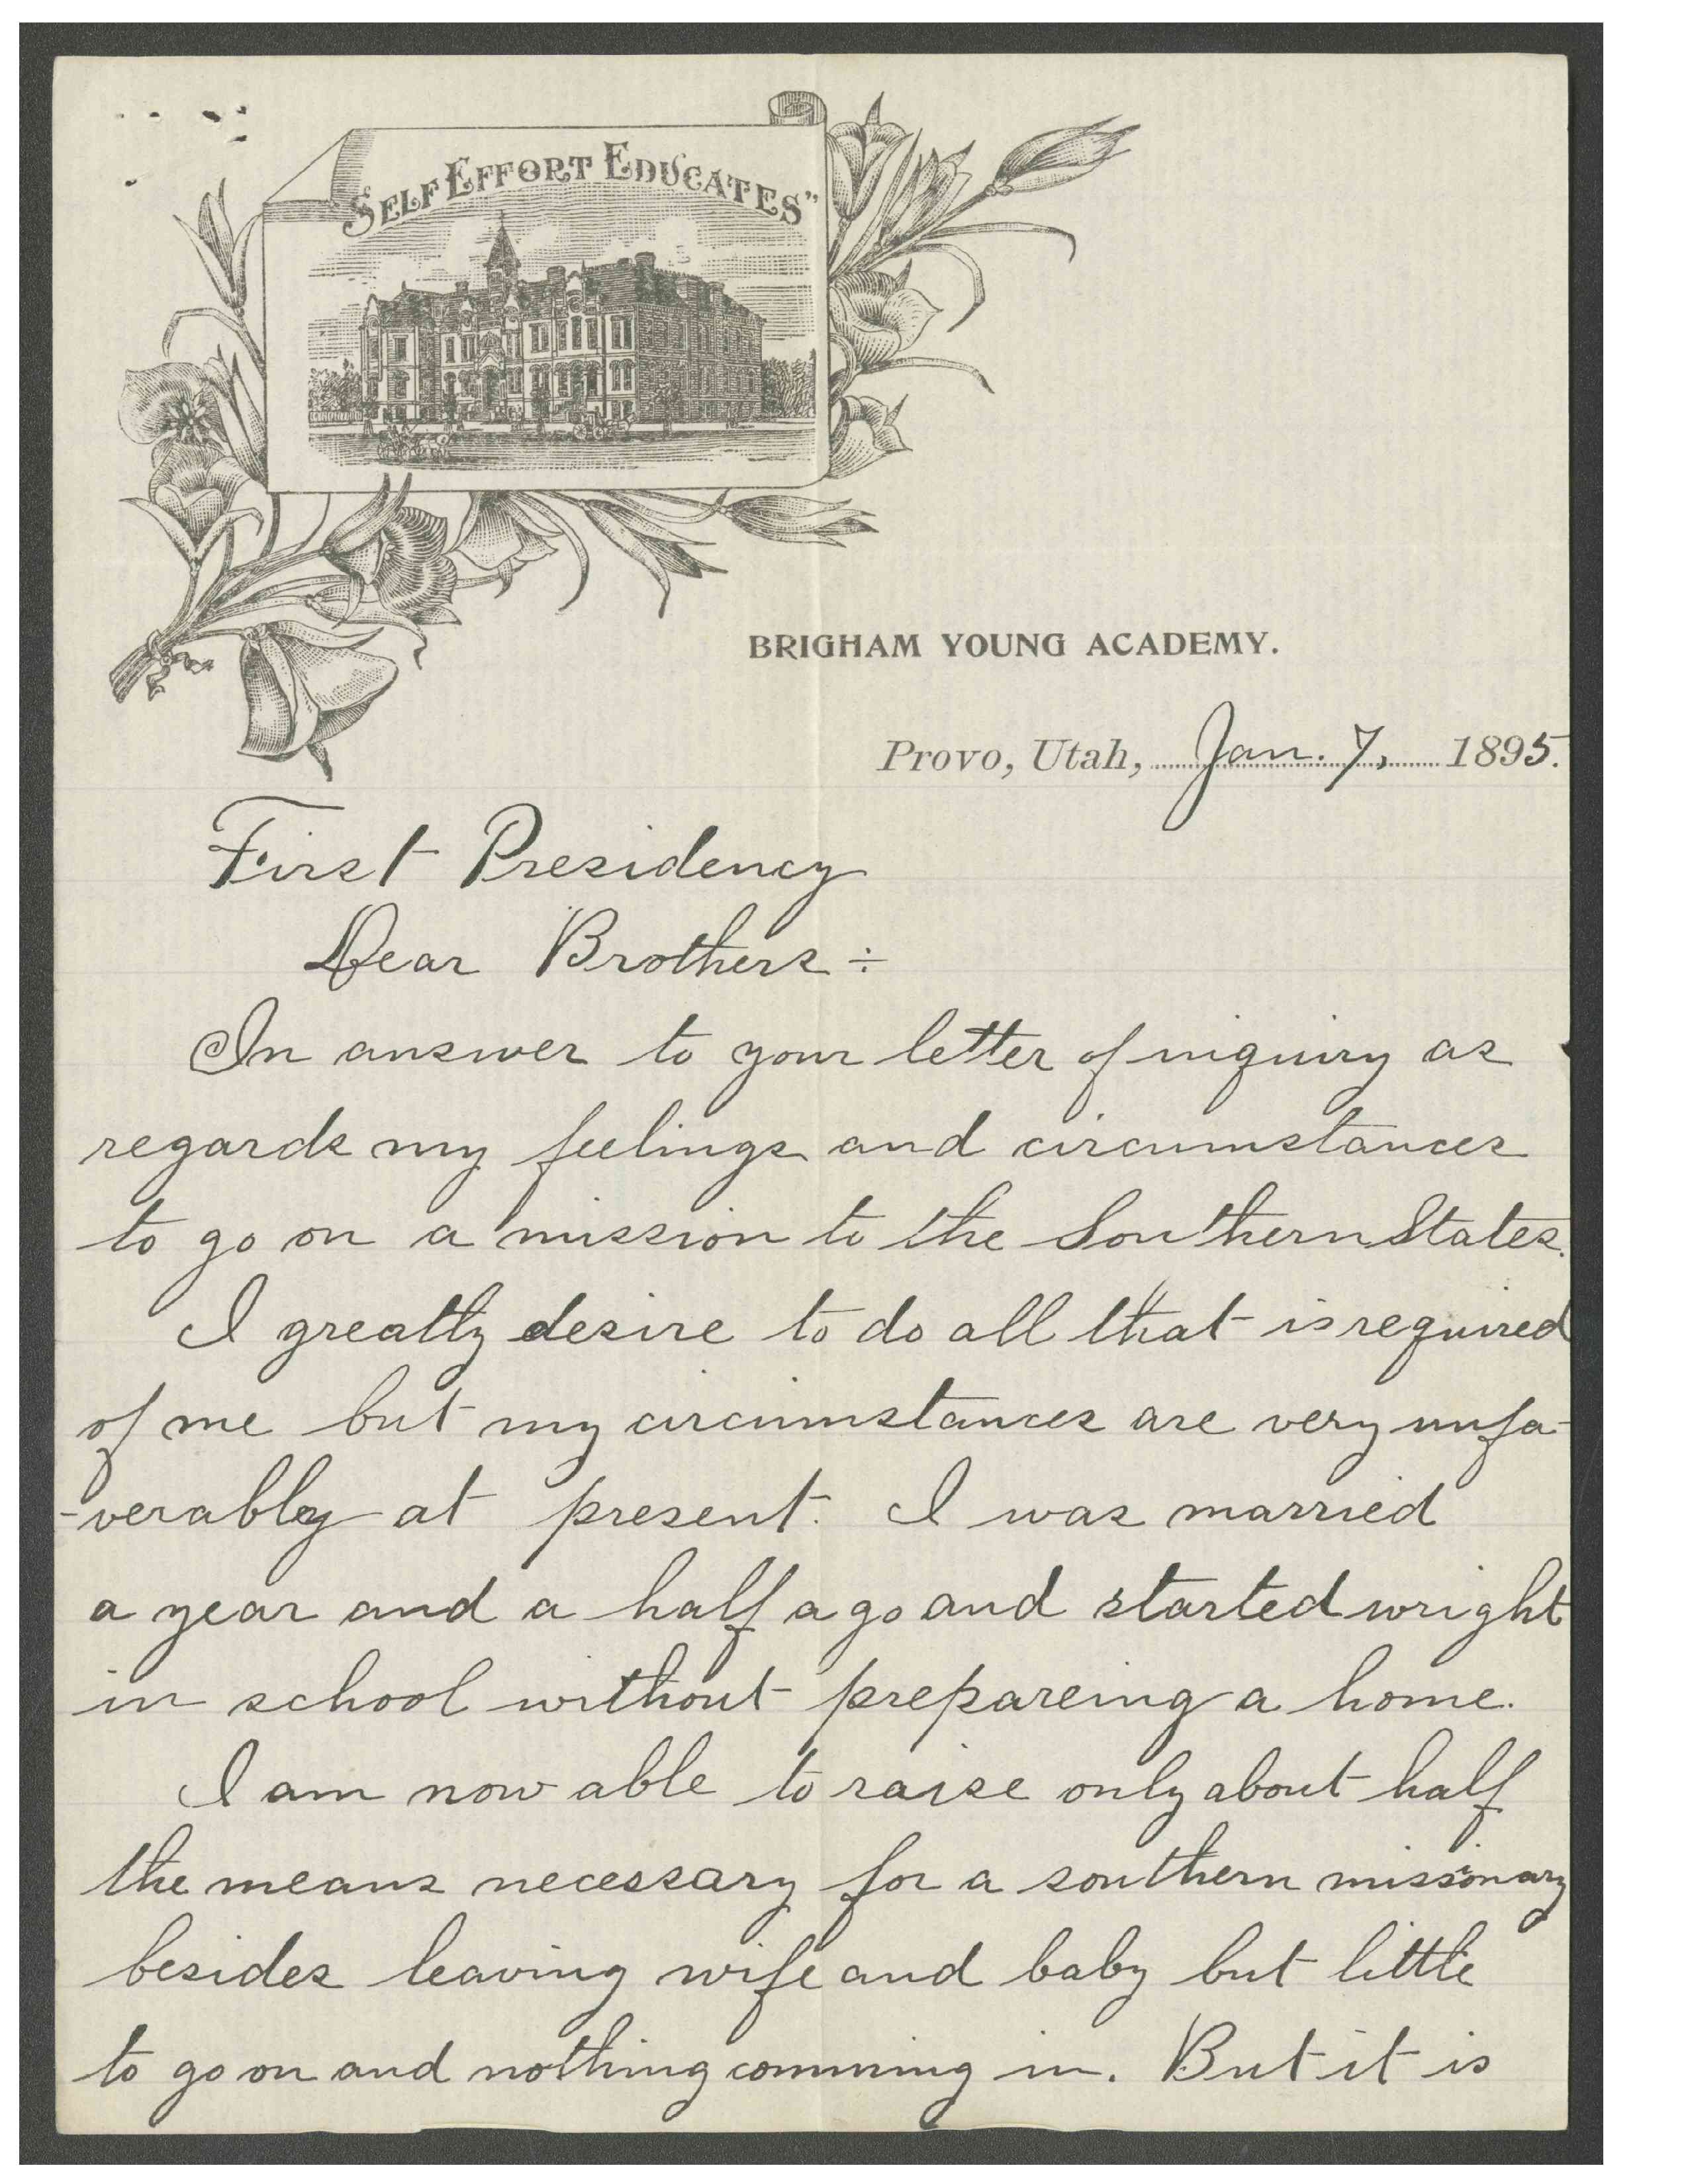 "SELF EFFORT EDUCATES"
BRIGHAM YOUNG ACADEMY.
Provo, Utah, Jan. 7, 1895.
First Presidency
Dear Brothers÷
In answer to your letter of inquiry as
regards my feelings and circumstances
to go on a mission to the Southern States.
I greatly desire to do all that is required
of me but my circumstances are very unfa-
-verably at present. I was married
a year and a half ago and started wright
in school without prepareing a home.
I am now able to raise only about half
the means necessary for a southern missionary
besides leaving wife and baby but little
to go on and nothing comming in. But it is